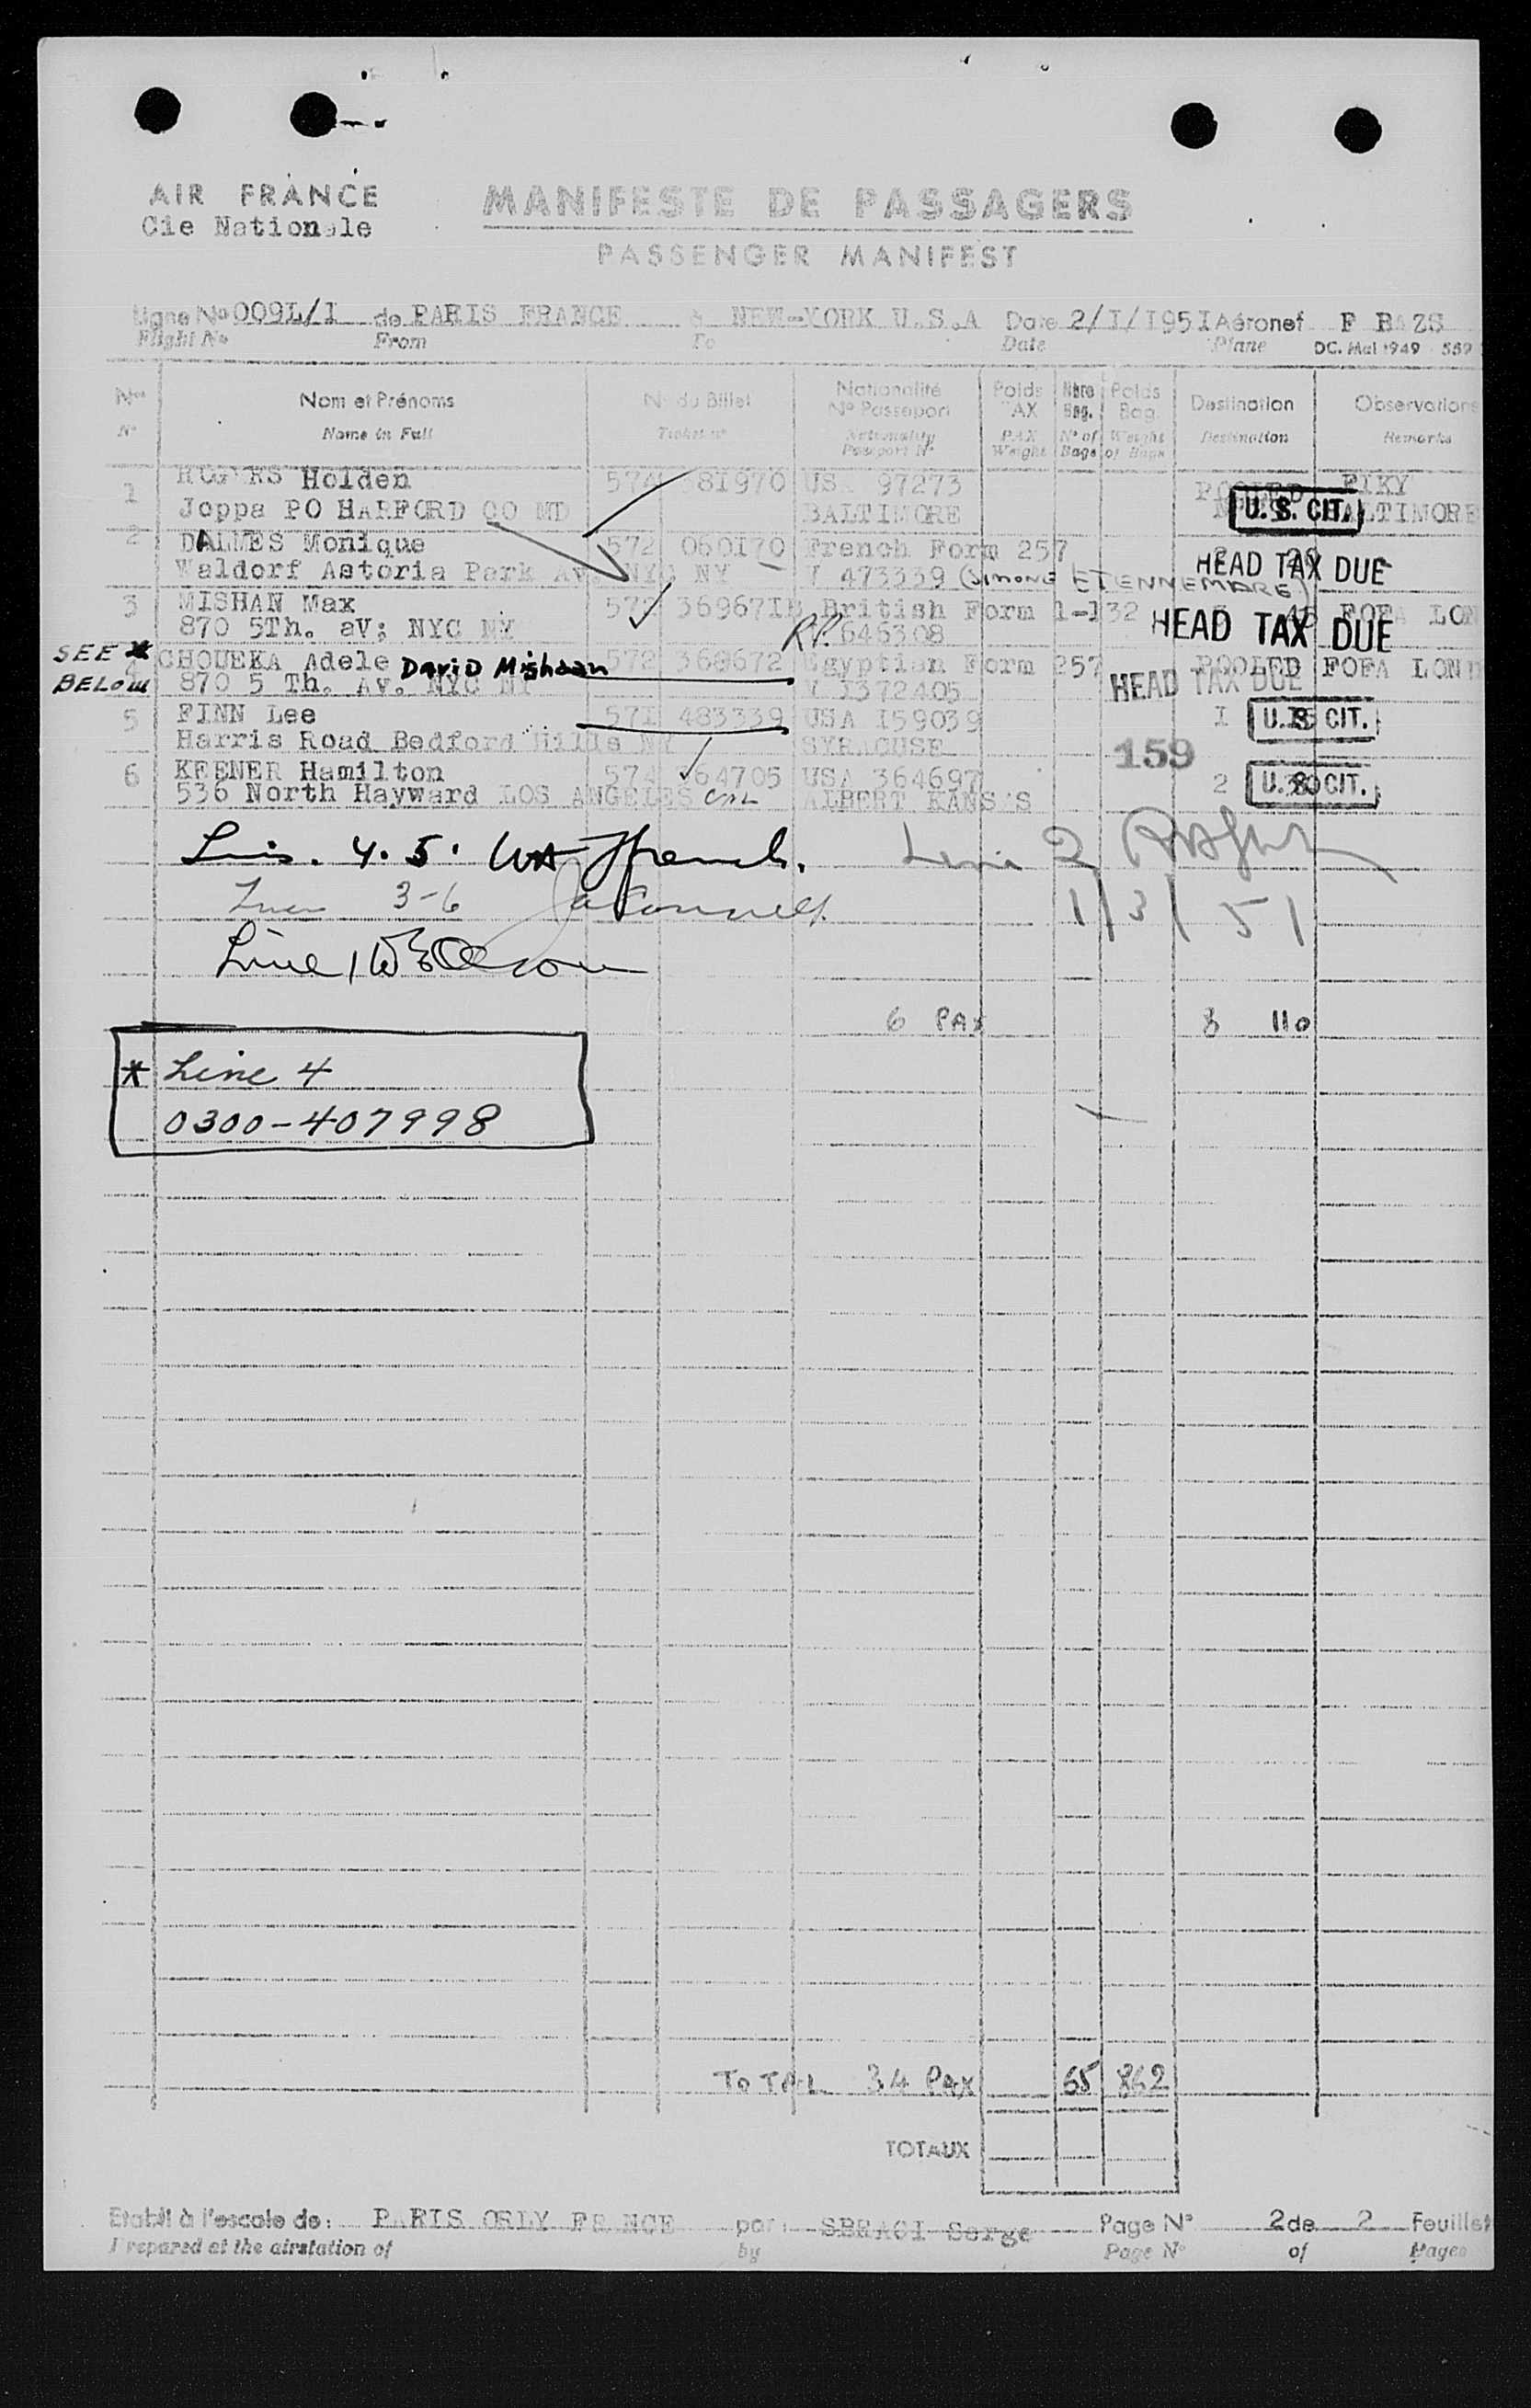 AIR FRANCE
Cie Nationale
MANIFESTE DE PASSAGERS
PASSENGER MANIFEST
Ligne No 009L/I de PARIS FRANCE à NEW-YORK U.S.A Date 2/I/I95I Aéronef F BAZS
Flight No From To Date Plane DC. Mai 1949 559
Nos Nom et Prénoms No du Billet Nationalité No Passeport Poids PAX Nbre Bag. Poids Bag. Destination Observations
No Name in Full Ticket no Nationality Passport No PAX Weight No of Bags Weight of Bags Destination Remarks
1 HUGHES Holden 574 81970 US 97273 POOLED PIKY
Joppa PO HARFORD CO MD BALTIMORE U.S. CIT. BALTIMORE
2 DALMES Monique 572 060I70 French Form 257
Waldorf Astoria Park Av. NYC NY V 473339 (SIMONE ETIENNEMARE) HEAD TAX DUE
3 MISHAN Max 572 36967IB British Form 1-132 45 FOFA LON
870 5Th. aV; NYC NY R.P. 646308 HEAD TAX DUE
SEE * 4 CHOUEKA Adele David Mishaan 572 368672 Egyptian Form 257 POOLED FOFA LOND
BELOW 870 5 Th. Av. NYC NY V I372405 HEAD TAX DUE
5 FINN Lee 57I 483339 USA I59039 I U.S. CIT.
Harris Road Bedford Hills NY SYRACUSE 159
6 KEENER Hamilton 574 364705 USA 364697 2 U.S. CIT.
536 North Hayward LOS ANGELES CAL ALBERT KANSAS
4. 5. Line 2
3-6 1/3/51
Line 1
6 PAX 8 110
* Line 4
0300-407998
TOTAL 34 PAX 65 862
TOTAUX
Etabli à l'escale de: PARIS ORLY FRANCE par: SBRAGI Serge Page No 2 de 2 Feuillets
Prepared at the airstation of by Page No of Pages